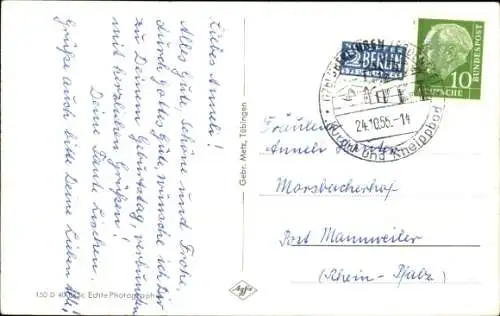 Liebes Annele!
Alles Gute, Schöne und Frohe,
durch Gottes Güte, wünsche ich Dir
zu Deinem Geburtstag, verbunden
mit herzlichen Grüßen!
Deine Tante Lischen.
Grüße auch bitte Deine Lieben alle!
Gebr. Metz, Tübingen
Echte Photographie
Agfa
2 NOTOPFER
BERLIN
STEUERMARKE
10
DEUTSCHE
BUNDESPOST
24.10.56.-14
Kurort und Kneippbad
Fräulein
Annele
Morsbacherhof
Post Mannweiler
(Rhein-Pfalz)